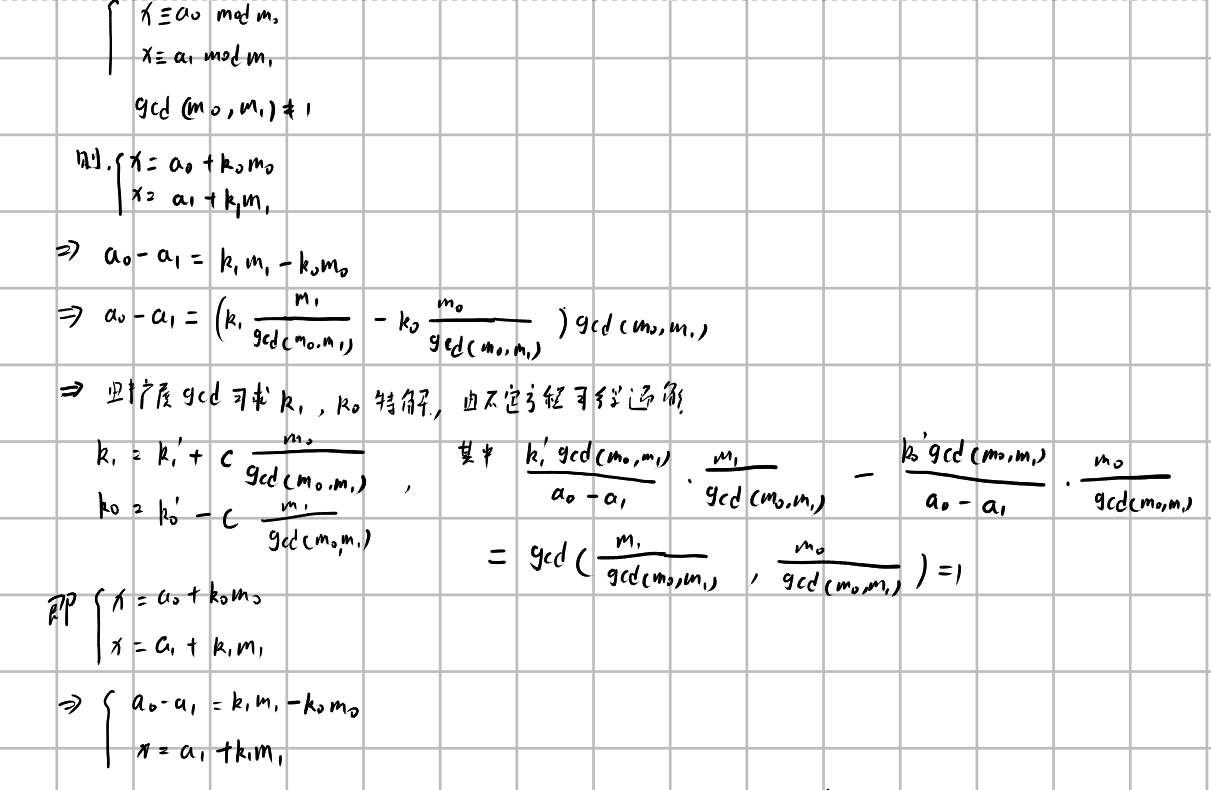 { x ≡ a₀ mod m₀
x ≡ a₁ mod m₁
gcd (m₀, m₁) ≠ 1
则. { x = a₀ + k₀m₀
x = a₁ + k₁m₁
⇒ a₀ - a₁ = k₁m₁ - k₀m₀
⇒ a₀ - a₁ = (k₁ m₁/gcd(m₀,m₁) - k₀ m₀/gcd(m₀,m₁)) gcd(m₀,m₁)
⇒ 由扩展gcd可求 k₁, k₀ 特解, 由不定方程可得通解
k₁ = k₁' + C m₀/gcd(m₀,m₁) , 其中 k₁' gcd(m₀,m₁)/(a₀ - a₁) · m₁/gcd(m₀,m₁) - k₀' gcd(m₀,m₁)/(a₀ - a₁) · m₀/gcd(m₀,m₁)
k₀ = k₀' - C m₁/gcd(m₀,m₁)
= gcd ( m₁/gcd(m₀,m₁) , m₀/gcd(m₀,m₁) ) = 1
即 { x = a₀ + k₀m₀
x = a₁ + k₁m₁
⇒ { a₀ - a₁ = k₁m₁ - k₀m₀
x = a₁ + k₁m₁